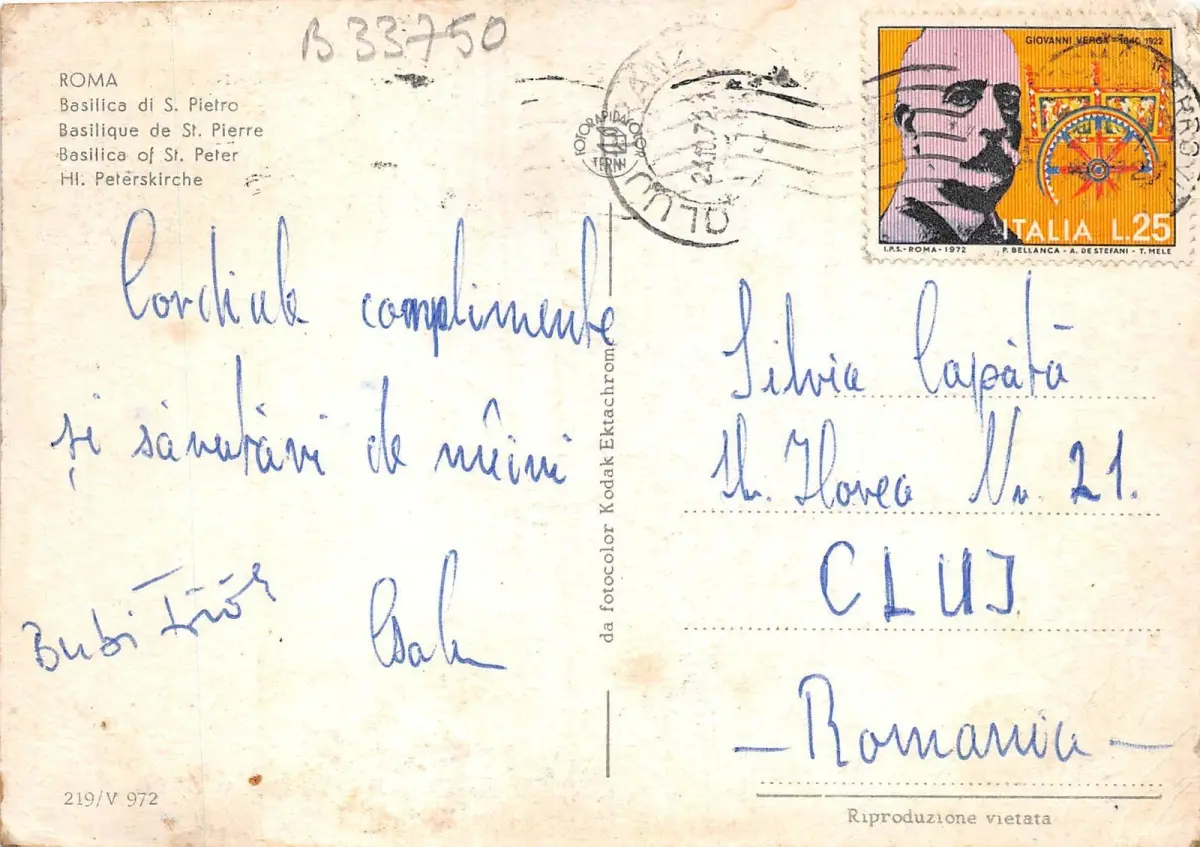 B 33750
ROMA
Basilica di S. Pietro
Basilique de St. Pierre
Basilica of St. Peter
Hl. Peterskirche
FOTORAPIDACOLOR
TERNI
CLUJ TRANZ
24.10.72
GIOVANNI VERGA 1840 1922
ITALIA L.25
I.P.S.-ROMA-1972 P. BELLANCA - A. DE STEFANI - T. MELE
Cordiale complimente
și sărutări de mîini
Bubi
da fotocolor Kodak Ektachrome
Silvia Capătă
Nr. 21.
CLUJ
— Romania —
219/V 972
Riproduzione vietata